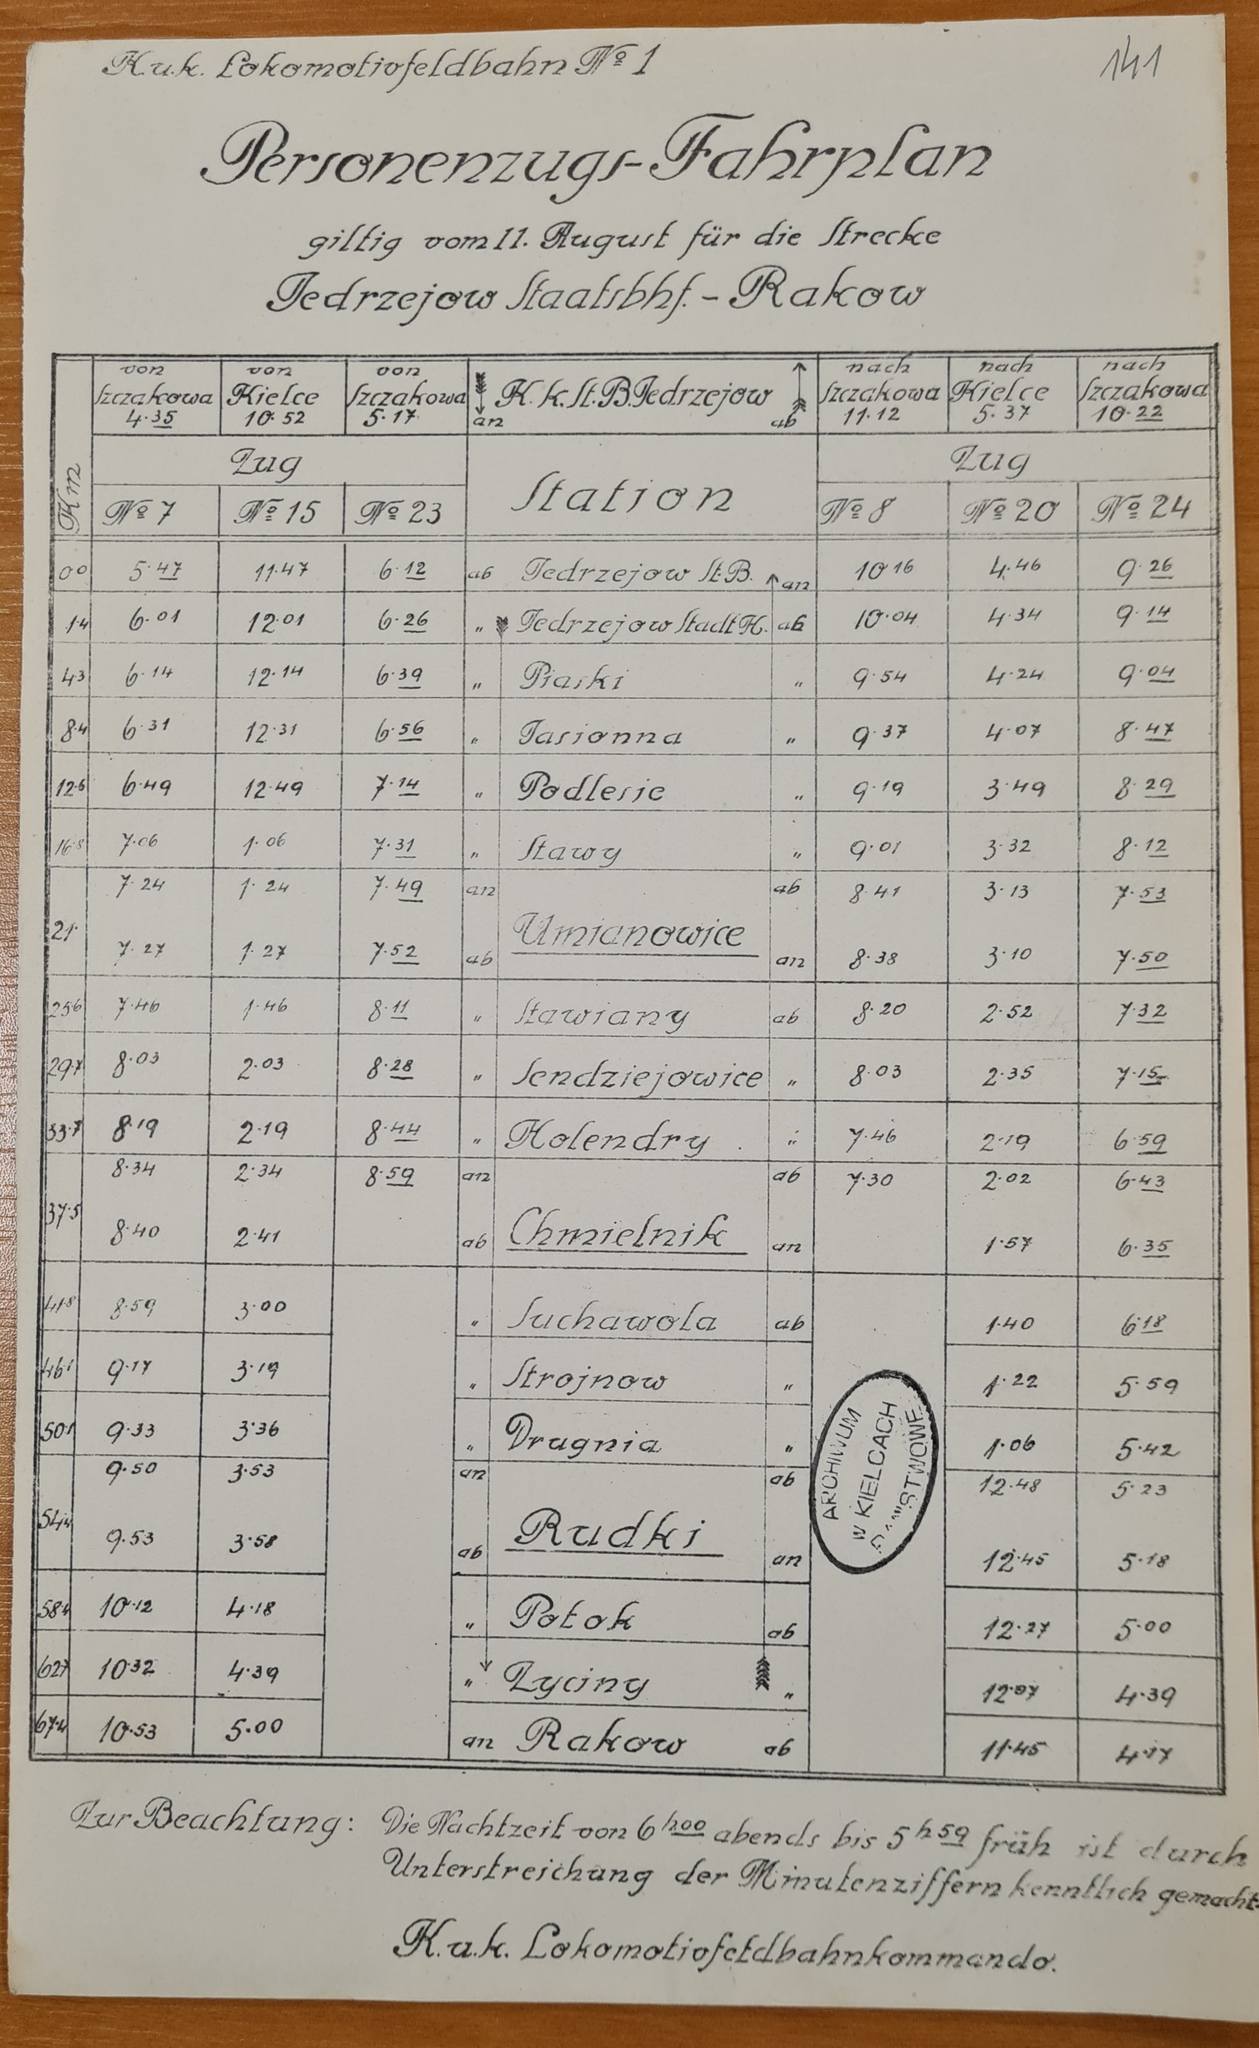 K.u.k. Lokomotivfeldbahn Nº 1
141
Personenzugs-Fahrplan
giltig vom 11. August für die Strecke
Jedrzejow Staatsbhf. - Rakow
Km von Szczakowa 4·35 von Kielce 10·52 von Szczakowa 5·17 an K.k.St.B.Jedrzejow ab nach Szczakowa 11·12 nach Kielce 5·37 nach Szczakowa 10·22
Zug Station Zug
Nº 7 Nº 15 Nº 23 Nº 8 Nº 20 Nº 24
0·0 5·47 11·47 6·12 ab Jedrzejow St.B. an 10·16 4·46 9·26
1·4 6·01 12·01 6·26 „ Jedrzejow Stadt H. ab 10·04 4·34 9·14
4·3 6·14 12·14 6·39 „ Piaski „ 9·54 4·24 9·04
8·4 6·31 12·31 6·56 „ Jasionna „ 9·37 4·07 8·47
12·6 6·49 12·49 7·14 „ Podlesie „ 9·19 3·49 8·29
16·8 7·06 1·06 7·31 „ Stawy „ 9·01 3·32 8·12
7·24 1·24 7·49 an ab 8·41 3·13 7·53
21· Umianowice
7·27 1·27 7·52 ab an 8·38 3·10 7·50
25·6 7·46 1·46 8·11 „ Stawiany ab 8·20 2·52 7·32
29·7 8·03 2·03 8·28 „ Sendziejowice „ 8·03 2·35 7·15
33·7 8·19 2·19 8·44 „ Holendry „ 7·46 2·19 6·59
8·34 2·34 8·59 an ab 7·30 2·02 6·43
37·5 Chmielnik
8·40 2·41 ab an 1·57 6·35
41·8 8·59 3·00 „ Suchawola ab 1·40 6·18
46·1 9·17 3·19 „ Strojnow „ 1·22 5·59
50·1 9·33 3·36 „ Drugnia „ 1·06 5·42
9·50 3·53 an ab 12·48 5·23
54·4 Rudki
9·53 3·58 ab an 12·45 5·18
58·4 10·12 4·18 „ Potok ab 12·27 5·00
62·7 10·32 4·39 „ Zyciny „ 12·07 4·39
67·4 10·53 5·00 an Rakow ab 11·45 4·17
ARCHIWUM
W KIELCACH
PAŃSTWOWE
Zur Beachtung: Die Nachtzeit von 6 h 00 abends bis 5 h 59 früh ist durch
Unterstreichung der Minutenziffern kenntlich gemacht.
K.u.k. Lokomotivfeldbahnkommando.